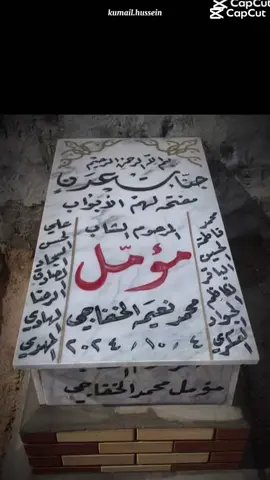 kumail.hussein
CapCut
CapCut
بسم الله الرحمن الرحيم
جنات عدن
مفتحة لهم الأبواب
المرحوم الشاب
مؤمل
محمد نعيم الخفاجي
٢٠٢٤/١٠/٤
محمد
فاطمة
الحسين
الباقر
الكاظم
الجواد
العسكري
علي
الحسن
السجاد
الصادق
الرضا
الهادي
المهدي
مؤمل محمد الخفاجي